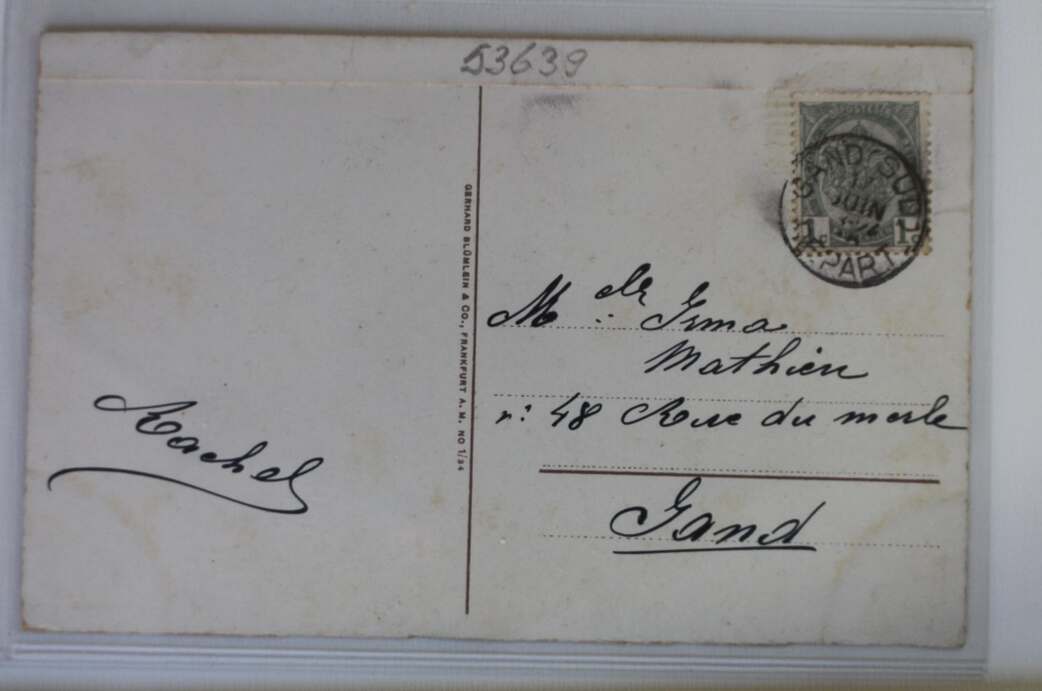 53639
GAND (SUD)
JUIN
DEPART
1c 1c
GERHARD BLÜMLEIN & CO., FRANKFURT A. M. NO 1/34
Mdlle Irma
Mathieu
n: 48 Rue du merle
Gand
Rachel